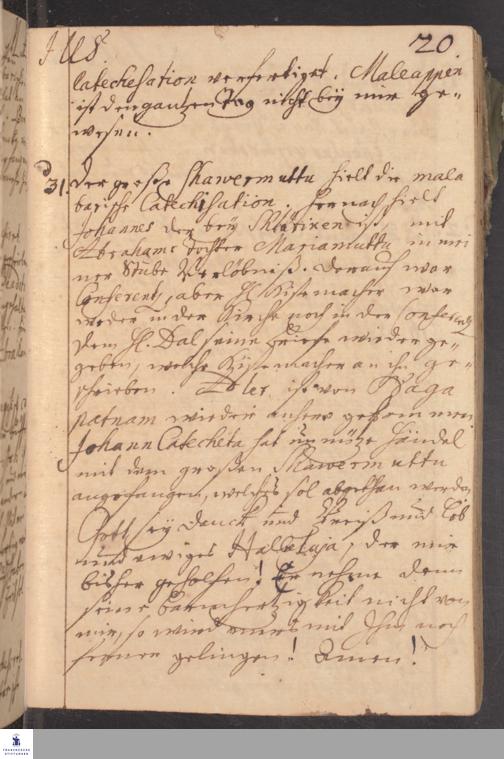 20
Catechesation verfertiget. Maleappen
ist den gantzen Tag nicht bey mir ge-
wesen.
d 31. Der große Shawermuttu hielt die mala
barische Catechisation. Hernach hielt
Johannes der bey ist, mit
Abrahams Tochter Mariamuttu in mei
ner Stube Verlöbniß. Darauf war
Conferent, aber H. Kistemacher war
weder in der Kirche noch in der Conferentz
Dem H. Dal seine Briefe wieder ge-
geben, welche Kistemacher an ihn ge-
schrieben. ist von Naga
patnam wieder anhero gekommen
Johann Catecheta hat unnütze Händel
mit dem großen Shawermuttu
angefangen, welches sol abgethan werden
Gott sey Danck und Preiß und Lob
und ewiges Halleluja, der mir
bisher geholfen! Er nehme denn
seine Barmhertzigkeit nicht von
mir, so wird mit Ihm noch
ferner gelingen! Amen!
FRANCKESCHE
STIFTUNGEN